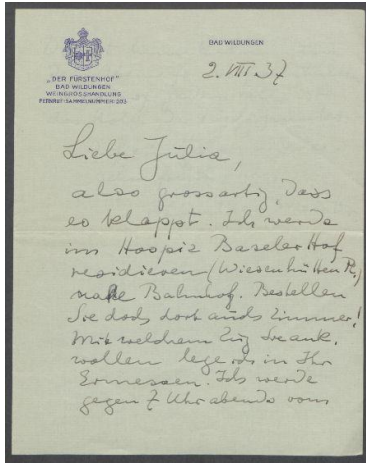 „DER FÜRSTENHOF"
BAD WILDUNGEN
WEINGROSSHANDLUNG
FERNRUF: SAMMELNUMMER 203
BAD WILDUNGEN
2. VIII. 37
Liebe Julia,
also grossartig, dass
es klappt. Ich werde
im Hospiz Baseler Hof
residieren (Wiesenhütten Pl.)
nahe Bahnhof. Bestellen
Sie doch dort auch Zimmer!
Mit welchem Zug Sie ank.
wollen lege ich in Ihr
Ermessen. Ich werde
gegen 7 Uhr abends vom